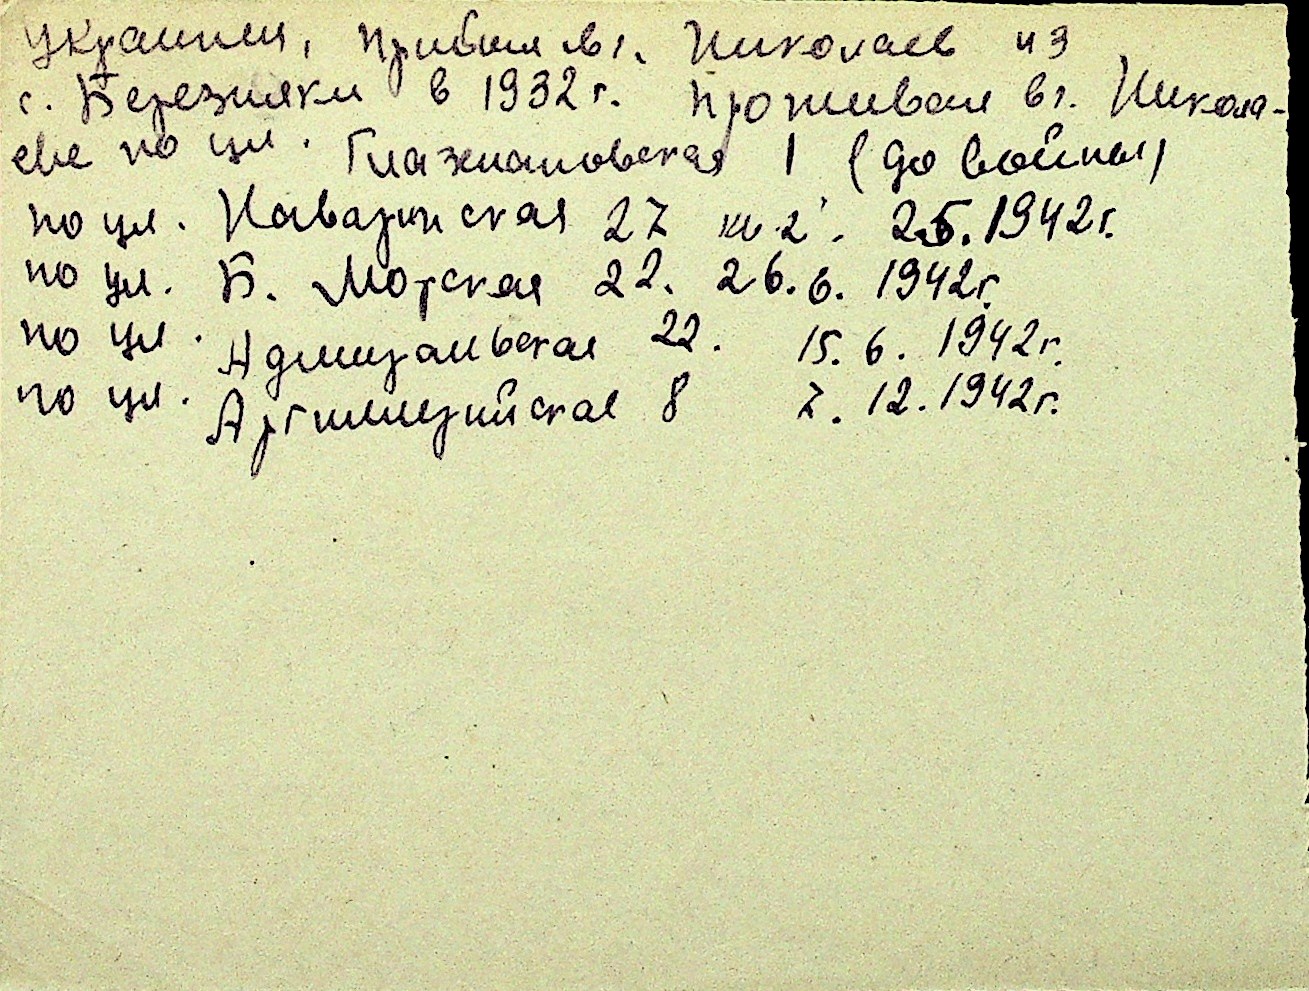 украинец, прибыл в г. Николаев из
с. Березняки в 1932 г. проживал в г. Никола-
еве по ул. Глазенаповская 1 (до войны)
по ул. Наваринская 27 кв. 2. 2.5.1942г.
по ул. Б. Морская 22. 26.6. 1942г.
по ул. Адмиральская 22. 15.6. 1942г.
по ул. Артиллерийская 8 7.12.1942г.